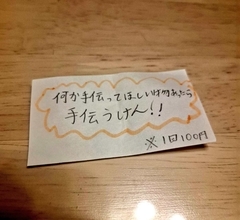 何か手伝ってほしい あったら
手伝うけん!!
※1回100円